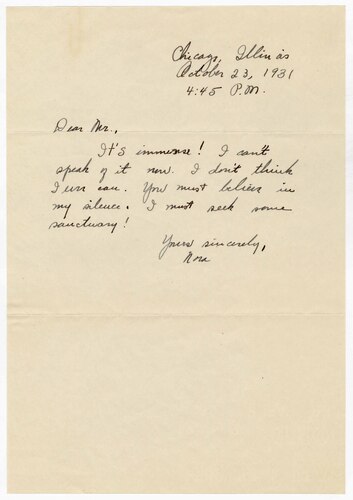 Chicago, Illinois
October 23, 1931
4:45 P.M.
Dear Mr.,
It's immense! I can't
speak of it now. I don't think
I ever can. You must believe in
my silence. I must seek some
sanctuary!
Yours sincerely,
Nora